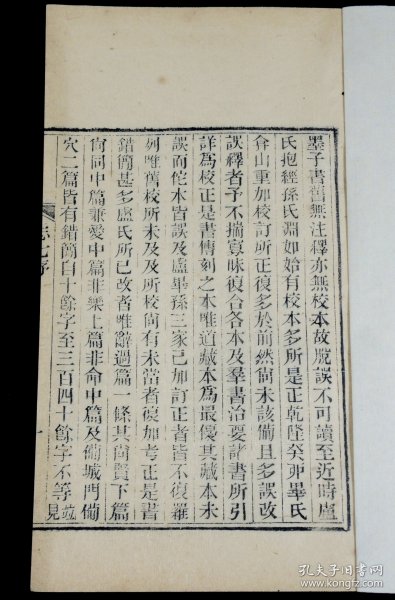 墨子書舊無注釋亦無校本故脫誤不可讀至近時盧
氏抱經孫氏淵如始有校本多所是正乾隆癸卯畢氏
弇山重加校訂所正復多於前然尙未該備且多誤改
誤釋者予不揣寡昧復合各本及羣書治要諸書所引
詳爲校正是書傳刻之本唯道藏本爲最優其藏本未
誤而佗本皆誤及盧畢孫三家已加訂正者皆不復羅
列唯舊校所未及及所校尙有未當者復加考正是書
錯簡甚多盧氏所已改者唯辭過篇一條其尙賢下篇
尙同中篇兼愛中篇非樂上篇非命中篇及備城門備
穴二篇皆有錯簡自十餘字至三百四十餘字不等竝見
志七序
一
孔夫子旧书网
www.kongfz.com